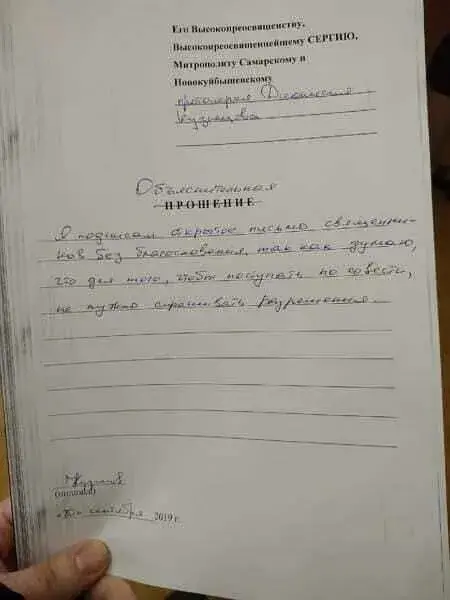 Его Высокопреосвященству,
Высокопреосвященнейшему СЕРГИЮ,
Митрополиту Самарскому и
Новокуйбышевскому
протоиерея Дионисия
Кузнецова
Объяснительная
ПРОШЕНИЕ
Я подписал открытое письмо священни-
ков без благословения, так как думаю,
что для того, чтобы поступать по совести,
не нужно спрашивать разрешения.
(подпись)
сентября 2019 г.